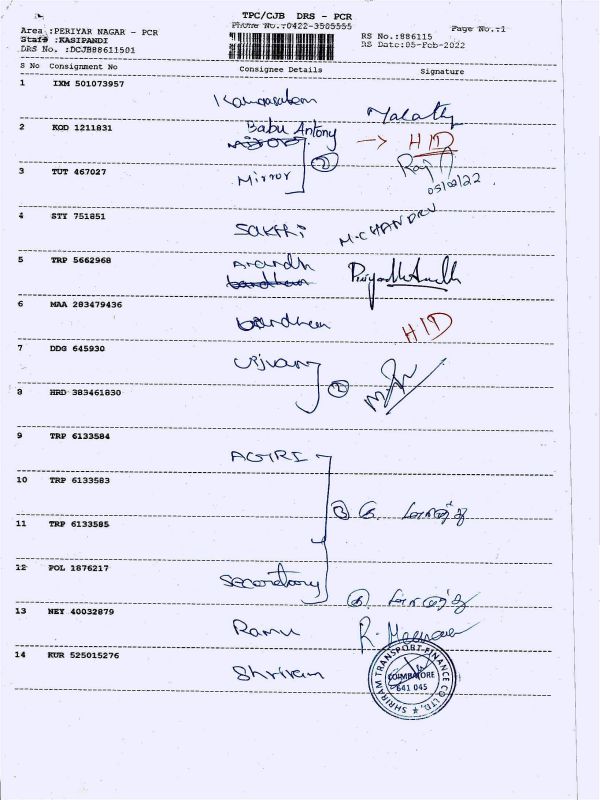 TPC/CJB DRS - PCR
Area :PERIYAR NAGAR - PCR
Phone No.:0422-3505555
Page No.:1
Staff :KASIPANDI
RS No.:886115
DRS No. :DCJB88611501
RS Date:05-Feb-2022
S No Consignment No Consignee Details Signature
1 IXM 501073957
Malathy
2 KOD 1211831 Babu Antony → HID
②
3 TUT 467027 Mirror
05/02/22
4 STY 751851 SAKTHI M.CHANDRU
5 TRP 5662968 Anandh
6 MAA 283479436 HID
7 DDG 645930
②
8 HRD 383461830
9 TRP 6133584
10 TRP 6133583
11 TRP 6133585
③
12 POL 1876217 Secretary
13 NEY 40032879 Ramu R. Meena
14 KUR 525015276 Shriram
SHRIRAM TRANSPORT FINANCE CO LTD.
COIMBATORE
641 045